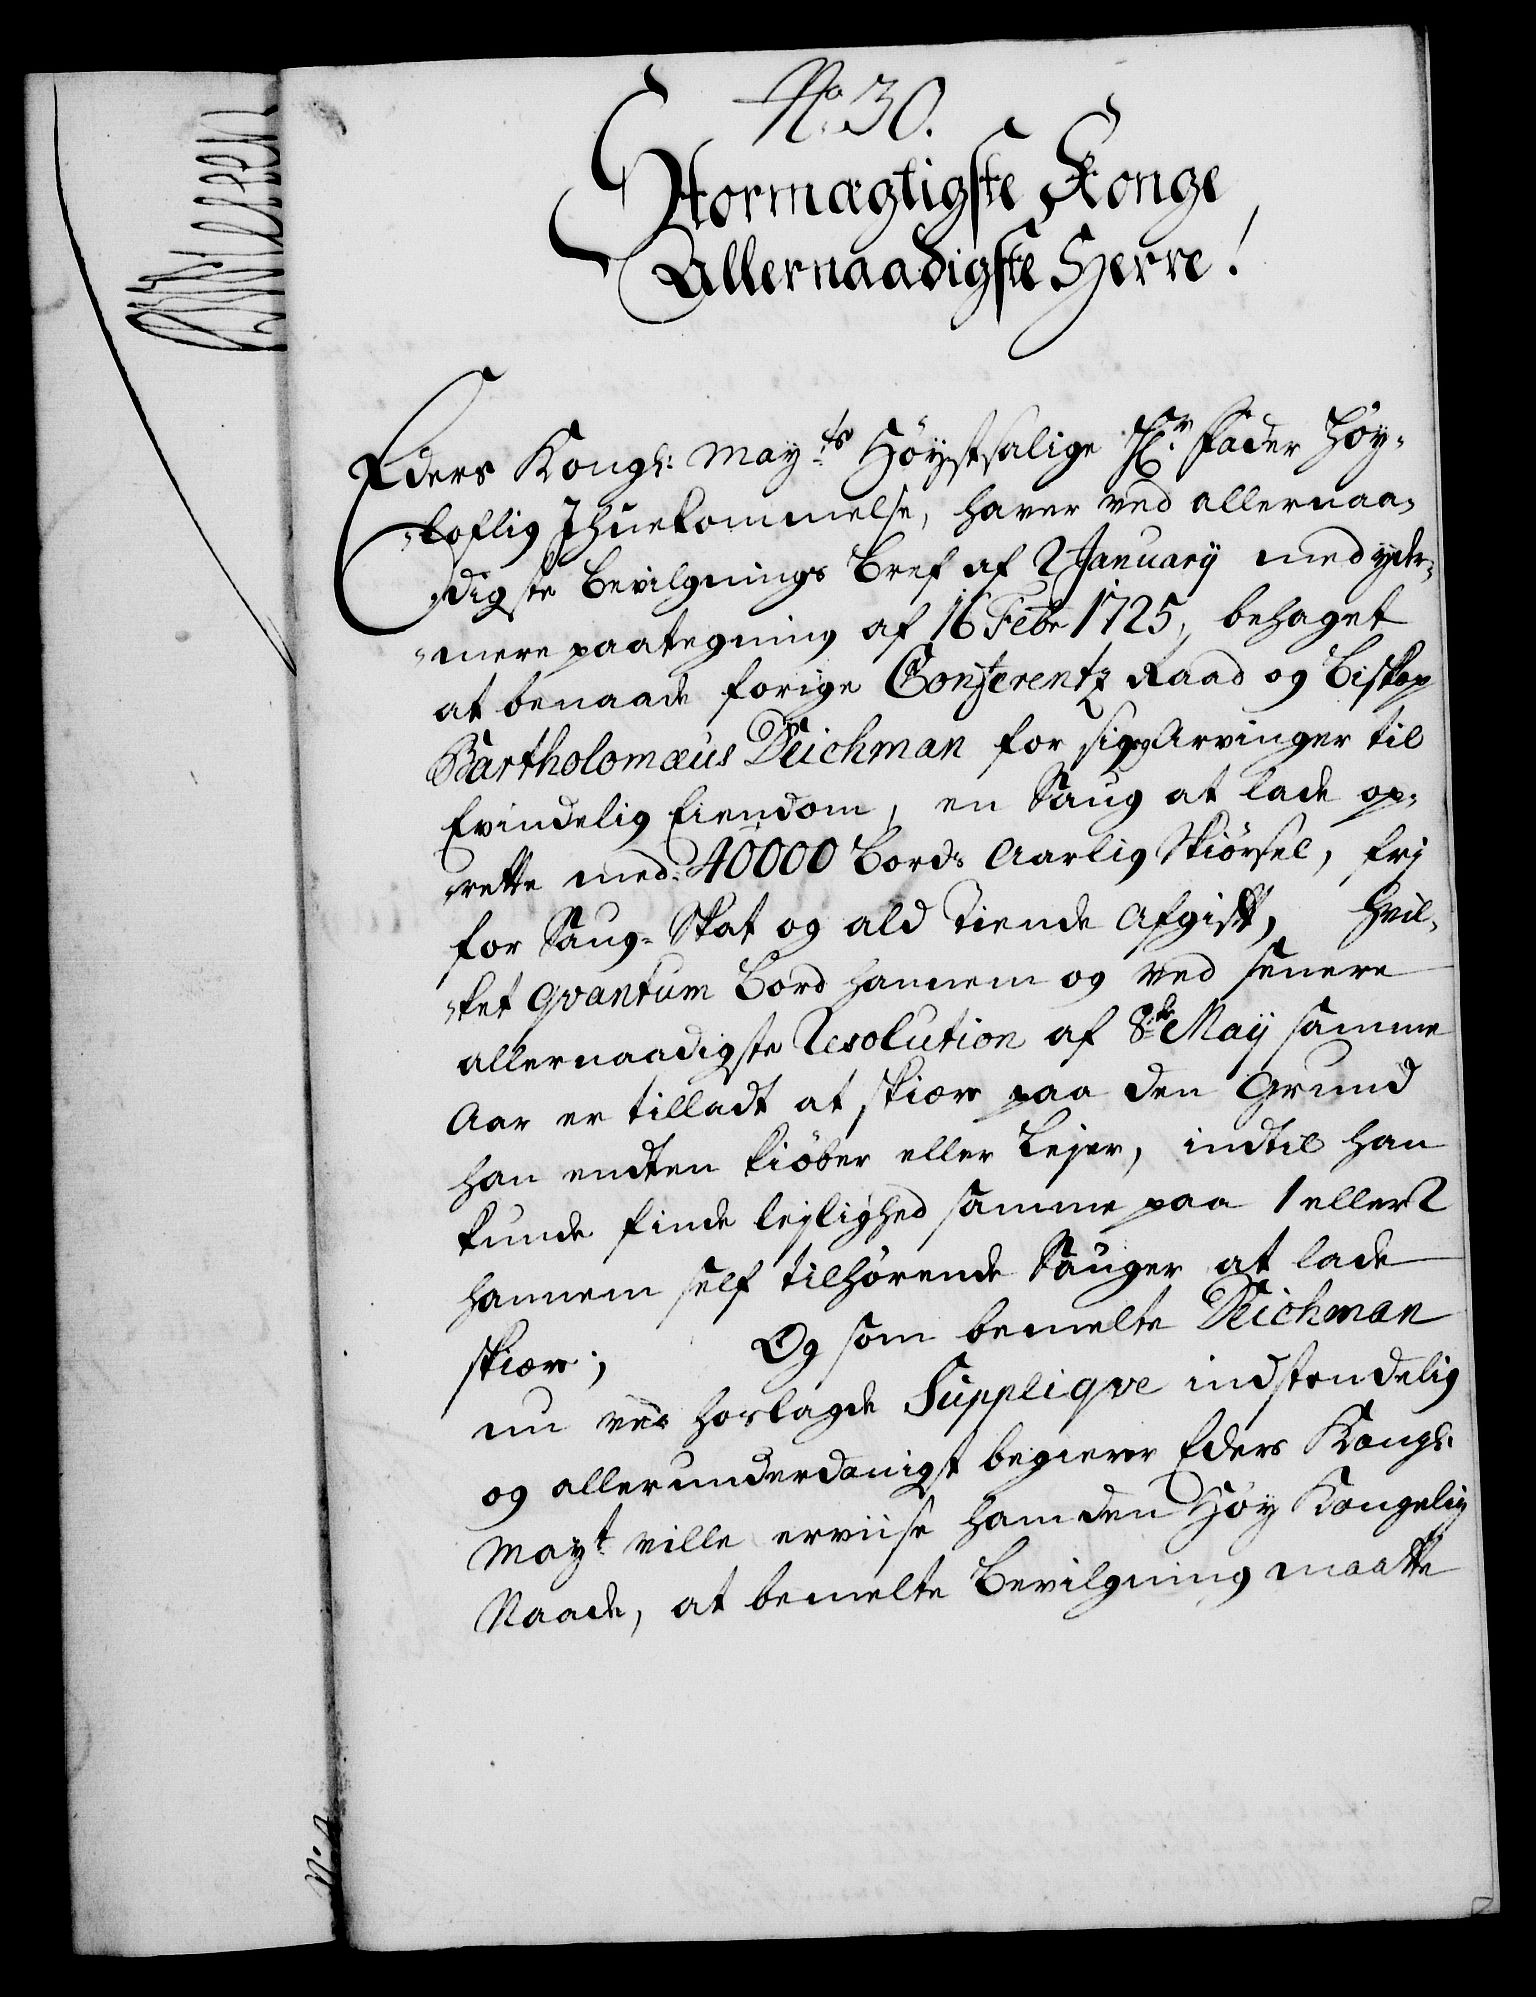 No. 30.
Stormægtigste Konge
Allernaadigste Herre!
Eders Kongl: May:ts Høystsalige Hr. Fader Høy-
loflig Ihuekommelse, haver ved allernaa-
digste Bevilgnings Bref af 2 January med yder-
mere paategning af 16 Febr 1725, behaget
at benaade forige Conferentz Raad og Biskop
Bartholomæus Deichman for sig og Arvinger til
Evindelig Eiendom, en Saug at lade op-
rette med 40000 Bords Aarlig Skiørsel, frj
for Saug-Skat og ald Tiende Afgift, hvil-
ket qvantum Bord hannem og ved senere
allernaadigste Resolution af 8de Maij samme
Aar er tilladt at skiære paa den Grund
han endten kiøber eller Lejer, indtil han
kunde finde lejlighed samme paa 1 eller 2
hannem self tilhørende Sauger at lade
skiære; Og som bemelte Deichman
nu ved hoslagde Supplique indstendelig
og allerunderdanigst begierer Eders Kongl:
Mayt ville erviise ham den Høy Kongelig
Naade, at bemelte Bevilgning maatte